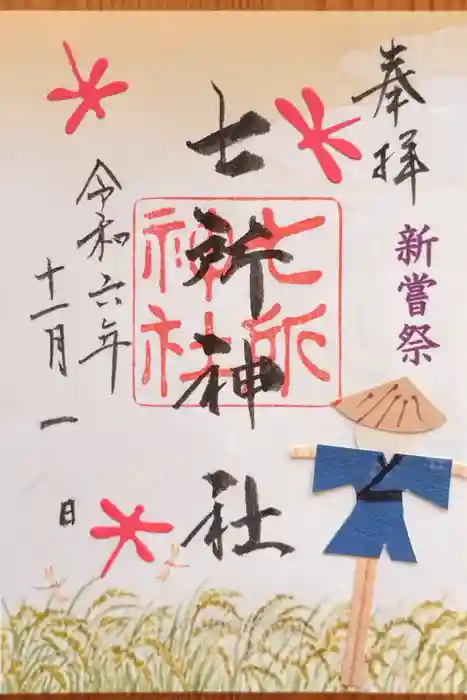 奉拝
新嘗祭
七所神社
七所神社
令和六年
十一月一日